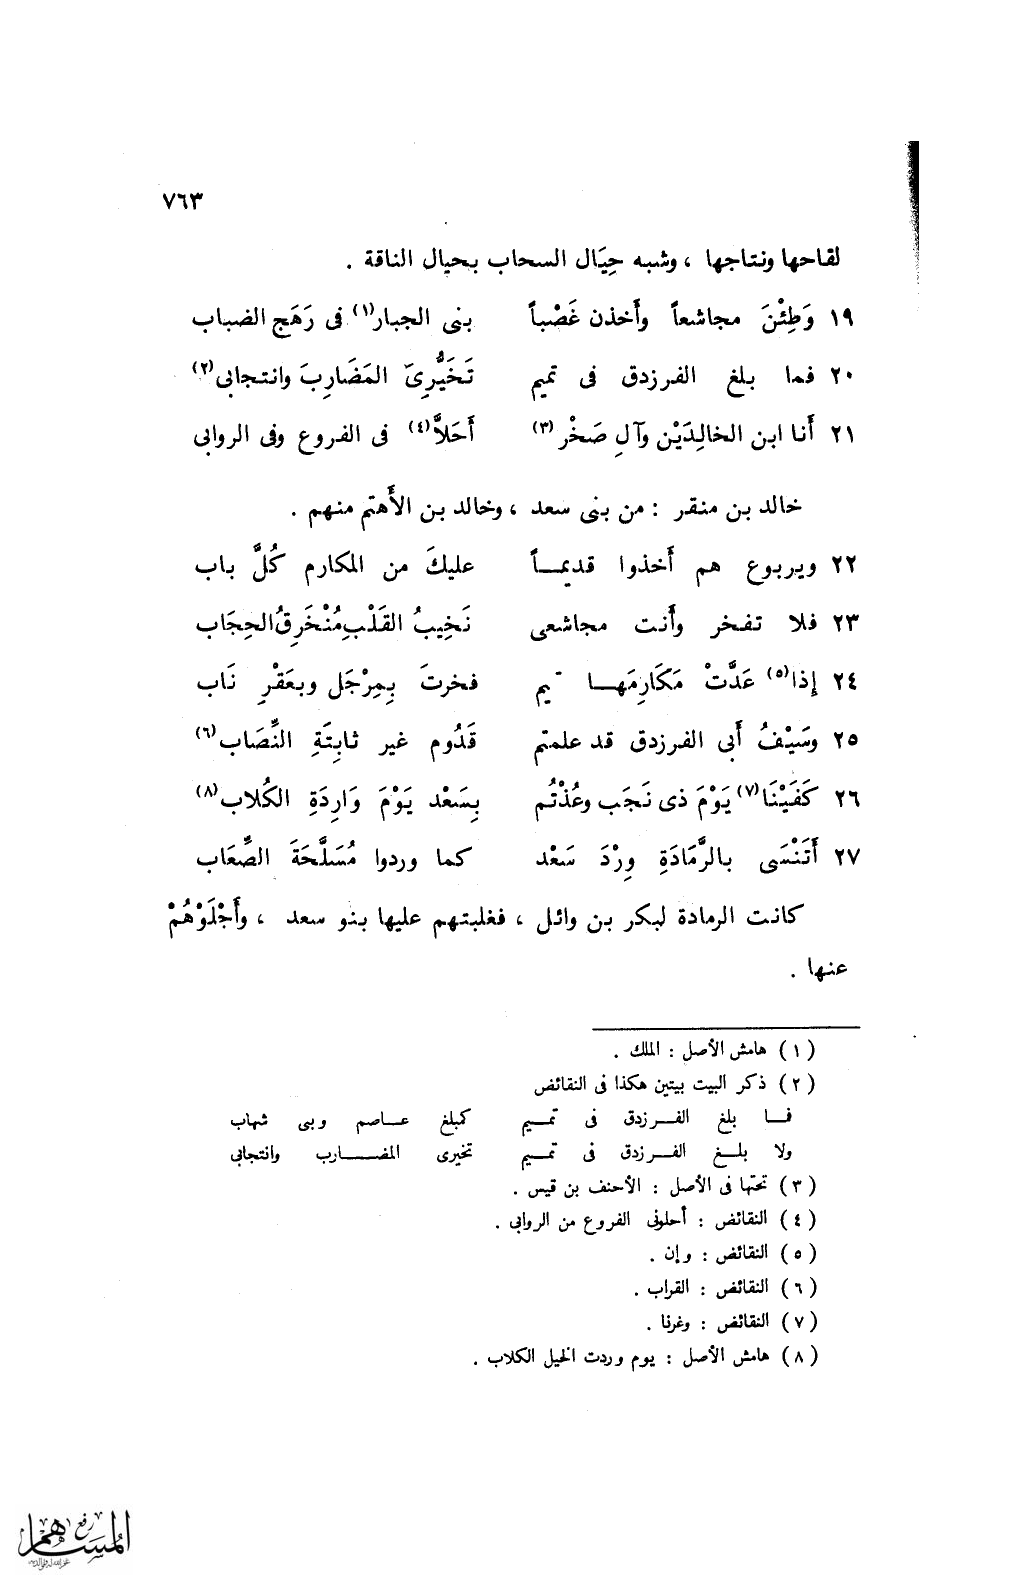 ٧٦٣
لقاحها ونتاجها ، وشبه حِيَال السحاب بحيال الناقة .
١٩ وَطِئْنَ مجاشعاً وأَخذن غَصْباً بنى الجبار(١) فى رَهَج الضباب
٢٠ فما بلغ الفرزدق فى تميم تَخَيُّرِىَ المَضَارِبَ وانتجابى(٢)
٢١ أَنا ابن الخالِدَيْن وآلِ صَخْر(٣) أَحَلاَّ(٤) فى الفروع وفى الروابى
خالد بن منقر : من بنى سعد ، وخالد بن الأَهتم منهم .
٢٢ ويربوع هم أَخذوا قديمـاً عليكَ من المكارم كُلَّ باب
٢٣ فلا تفخر وأَنت مجاشعى نَخِيبُ القَلْبِ مُنْخَرِقُ الحِجَاب
٢٤ إِذا(٥) عَدَّتْ مَكَارِمَهـا تيم فخرتَ بِمِرْجَل وبعَقْرِ نَاب
٢٥ وسَيْفُ أَبى الفرزدق قد علمتم قَدُوم غير ثابِتَةِ النِّصَاب(٦)
٢٦ كَفَيْنَا(٧) يَوْمَ ذى نَجَب وعُذْتُم بِسَعْد يَوْمَ وَارِدَةِ الكُلاب(٨)
٢٧ أَتَنْسَى بالرَّمَادَةِ وِرْدَ سَعْد كما وردوا مُسَلَّحَةَ الصِّعَاب
كانت الرمادة لبكر بن وائل ، فغلبتهم عليها بنو سعد ، وأَجْلَوْهُمْ
عنها .
(١) هامش الأصل : الملك .
(٢) ذكر البيت بيتين هكذا فى النقائض
فـا بلغ الفـرزدق فى تمـيم كمبلغ عـاصم وبنى شهاب
ولا بلـغ الفـرزدق فى تمـيم تخيرى المضـارب وانتجابى
(٣) تحتها فى الأصل : الأحنف بن قيس .
(٤) النقائض : أحلونى الفروع من الروابى .
(٥) النقائض : وإن .
(٦) النقائض : القراب .
(٧) النقائض : وغرنا .
(٨) هامش الأصل : يوم وردت الخيل الكلاب .